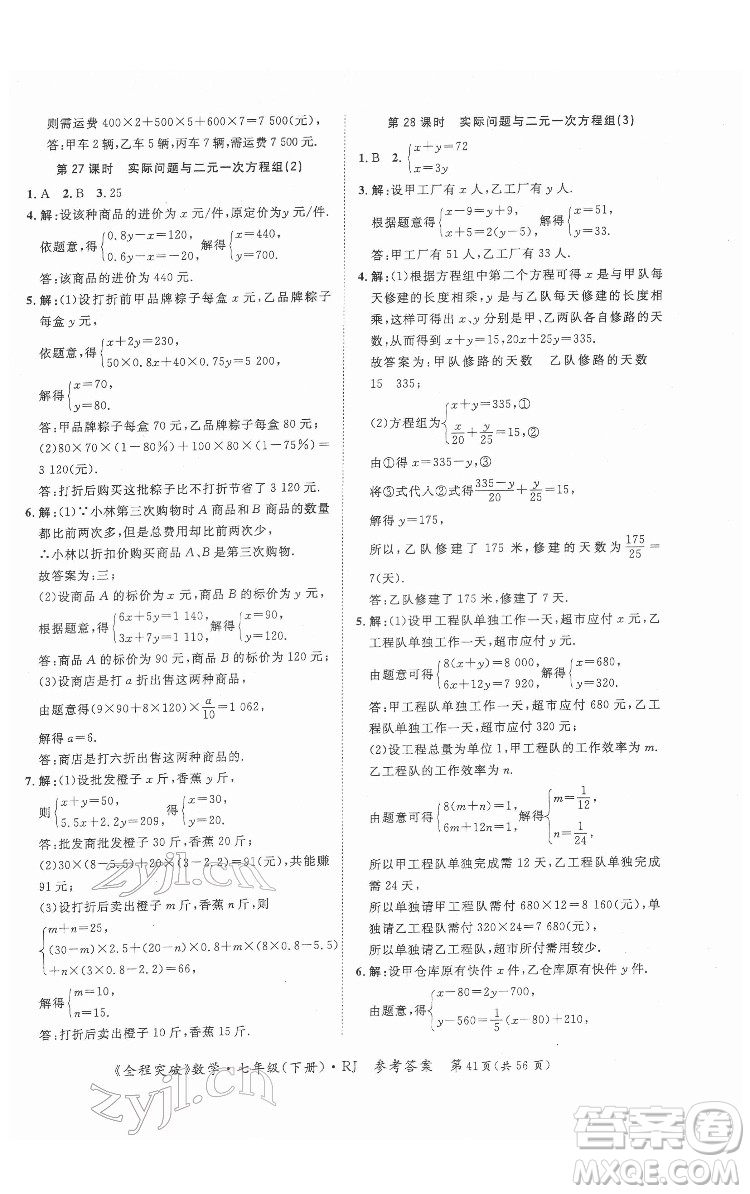 则需运费 400×2+500×5+600×7=7 500元.
答:甲车2辆,乙车5辆,丙车7辆,需运费7 500元.
第27课时 实际问题与二元一次方程组(2)
1. A 2. B 3. 25
4. 解:设该种商品的进价为x元/件,原定价为y元/件.
依题意,得{0.8y-x=120, 0.6y-x=-20, 解得{x=440, y=700.
答:该商品的进价为440元.
5. 解:(1)设打折前甲品牌粽子每盒x元,乙品牌粽子
每盒y元
依题意,得{x+2y=230, 50×0.8x+100×0.75y=
解得{x=70, y=80.
答:打折前甲品牌粽子每盒70元,乙品牌粽子每盒80元.
(2)80×70×(1-80%)+100×80×(1-75%)=
3 120(元).
答:打折后购买这批粽子比不打折节省了3 120元.
6. 解:(1)∵小林第三次购物时A商品和B商品的数量
都比前两次多,但是总费用却比前两次少,
∴小林以折扣价购买商品A、B是第三次购物.
故答案为:三;
(2)设商品A的标价为x元,商品B的标价为y元,
根据题意,得{6x+5y=1 140, 3x+7y=1 110, 解得{x=90, y=120.
答:商品A的标价为90元,商品B的标价为120元.
(3)设商店是打a折出售这两种商品,
由题意得(9×90+8×120)×a/10=1 062,
解得a=6.
答:商店是打六折出售这两种商品.
7. 解:(1)设批发橙子x斤,香蕉y斤,
则{x+y=50, 5.5x+2.2y=231, 得{x=30, y=20.
答:批发商批发橙子30斤,香蕉20斤.
(2)30×(8-5.5)+20×(3-2.2)=91(元),共能赚
91元.
(3)设打折后卖出橙子m斤,香蕉n斤,则
{m+n=25, (30-m)×2.5+(20-n)×0.8+m×(8×0.8-5.5)+n×(3×0.8-2.2)=66,
解得{m=10, n=15.
答:打折后卖出橙子10斤,香蕉15斤.
第28课时 实际问题与二元一次方程组(3)
1. B 2. {x+y=72 x=3y
3. 解:设甲工厂有x人,乙工厂有y人.
根据题意得{x-9=y+5, x+5=2(y-5), 解得{x=51, y=33.
答:甲工厂有51人,乙工厂有33人.
4. 解:(1)根据方程组中第二个方程可得x是甲队每
天修建的长度相乘,y与乙队每天修建的长度相
乘,可以得出x,y分别是甲、乙两队各自修路的天
数,从而得出x+y=15,20x+25y=335.
故答案为:甲队修路的天数 乙队修路的天数
15 335;
(2)方程组为{x+y=335,① x/20+y/25=15,②
由①得x=335-y,③
将③式代入②式得(335-y)/20+y/25=15,
解得y=175,
所以,乙队修建了175米,修建的天数为175/25=
7(天).
答:乙队修建了175米,修建的天数为7天.
5. 解:(1)设甲工程队单独工作一天,超市应付x元.
乙工程队单独工作一天,超市应付y元.
由题意可得{8(x+y)=8 000, 6x+12y=7 920, 解得{x=680, y=320.
答:甲工程队单独工作一天,超市应付680元,乙工
程队单独工作一天,超市应付320元.
(2)设工程总量为单位1,甲工程队的工作效率为m.
乙工程队的工作效率为n.
由题意可得{8(m+n)=1, 6m+12n=1, 解得{m=1/12, n=1/24.
所以甲工程队单独完成需12天,乙工程队单独完成需24天.
所以单独请甲工程队需付680×12=8 160(元),
单独请乙工程队需付320×24=7 680(元).
所以单独请乙工程队费用较少.
6. 解:设甲仓库原有快件x件,乙仓库原有快件y件.
由题意,得{x-80=2y-700, y-560=1/5(x-80)+210,
《全程突破》数学·七年级(下册)·RJ 参考答案 第41页(共56页)
zyjl.cn
zyjl.cn
答案卷
MXQE.COM